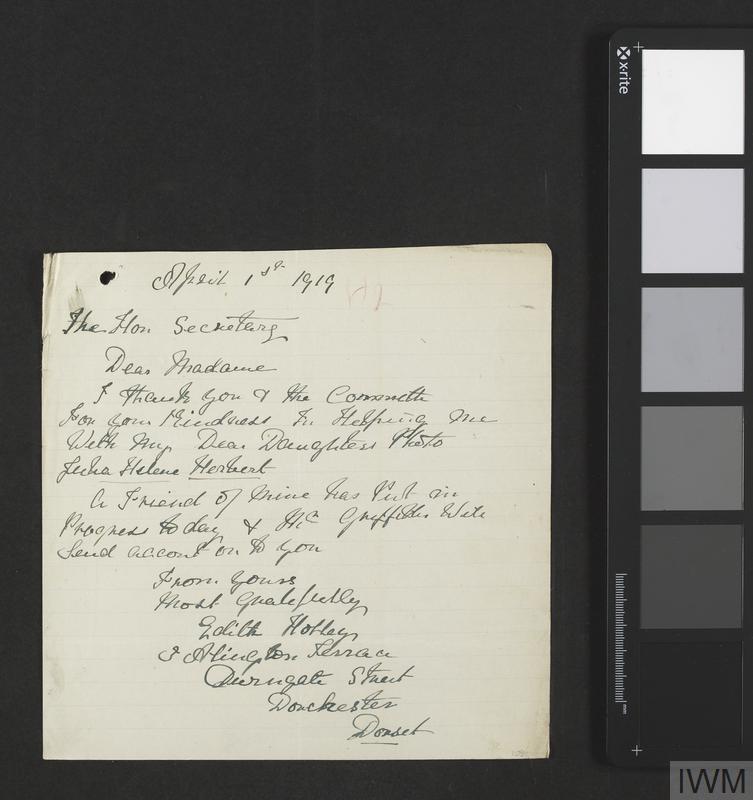 April 1st 1919
H2
The Hon Secretary
Dear Madame
I thank you & the Committe
For your Kindness In Helping me
With my Dear Daughters Photo
Julia Helene Herbert
A Friend of mine has Put in
Progress to day & Mr Griffiths Will
Send account on to you
From yours
Most Gratefully
Edith
Arlington Terrace
Durngate Street
Dorchester
Dorset
x-rite
mm
IWM